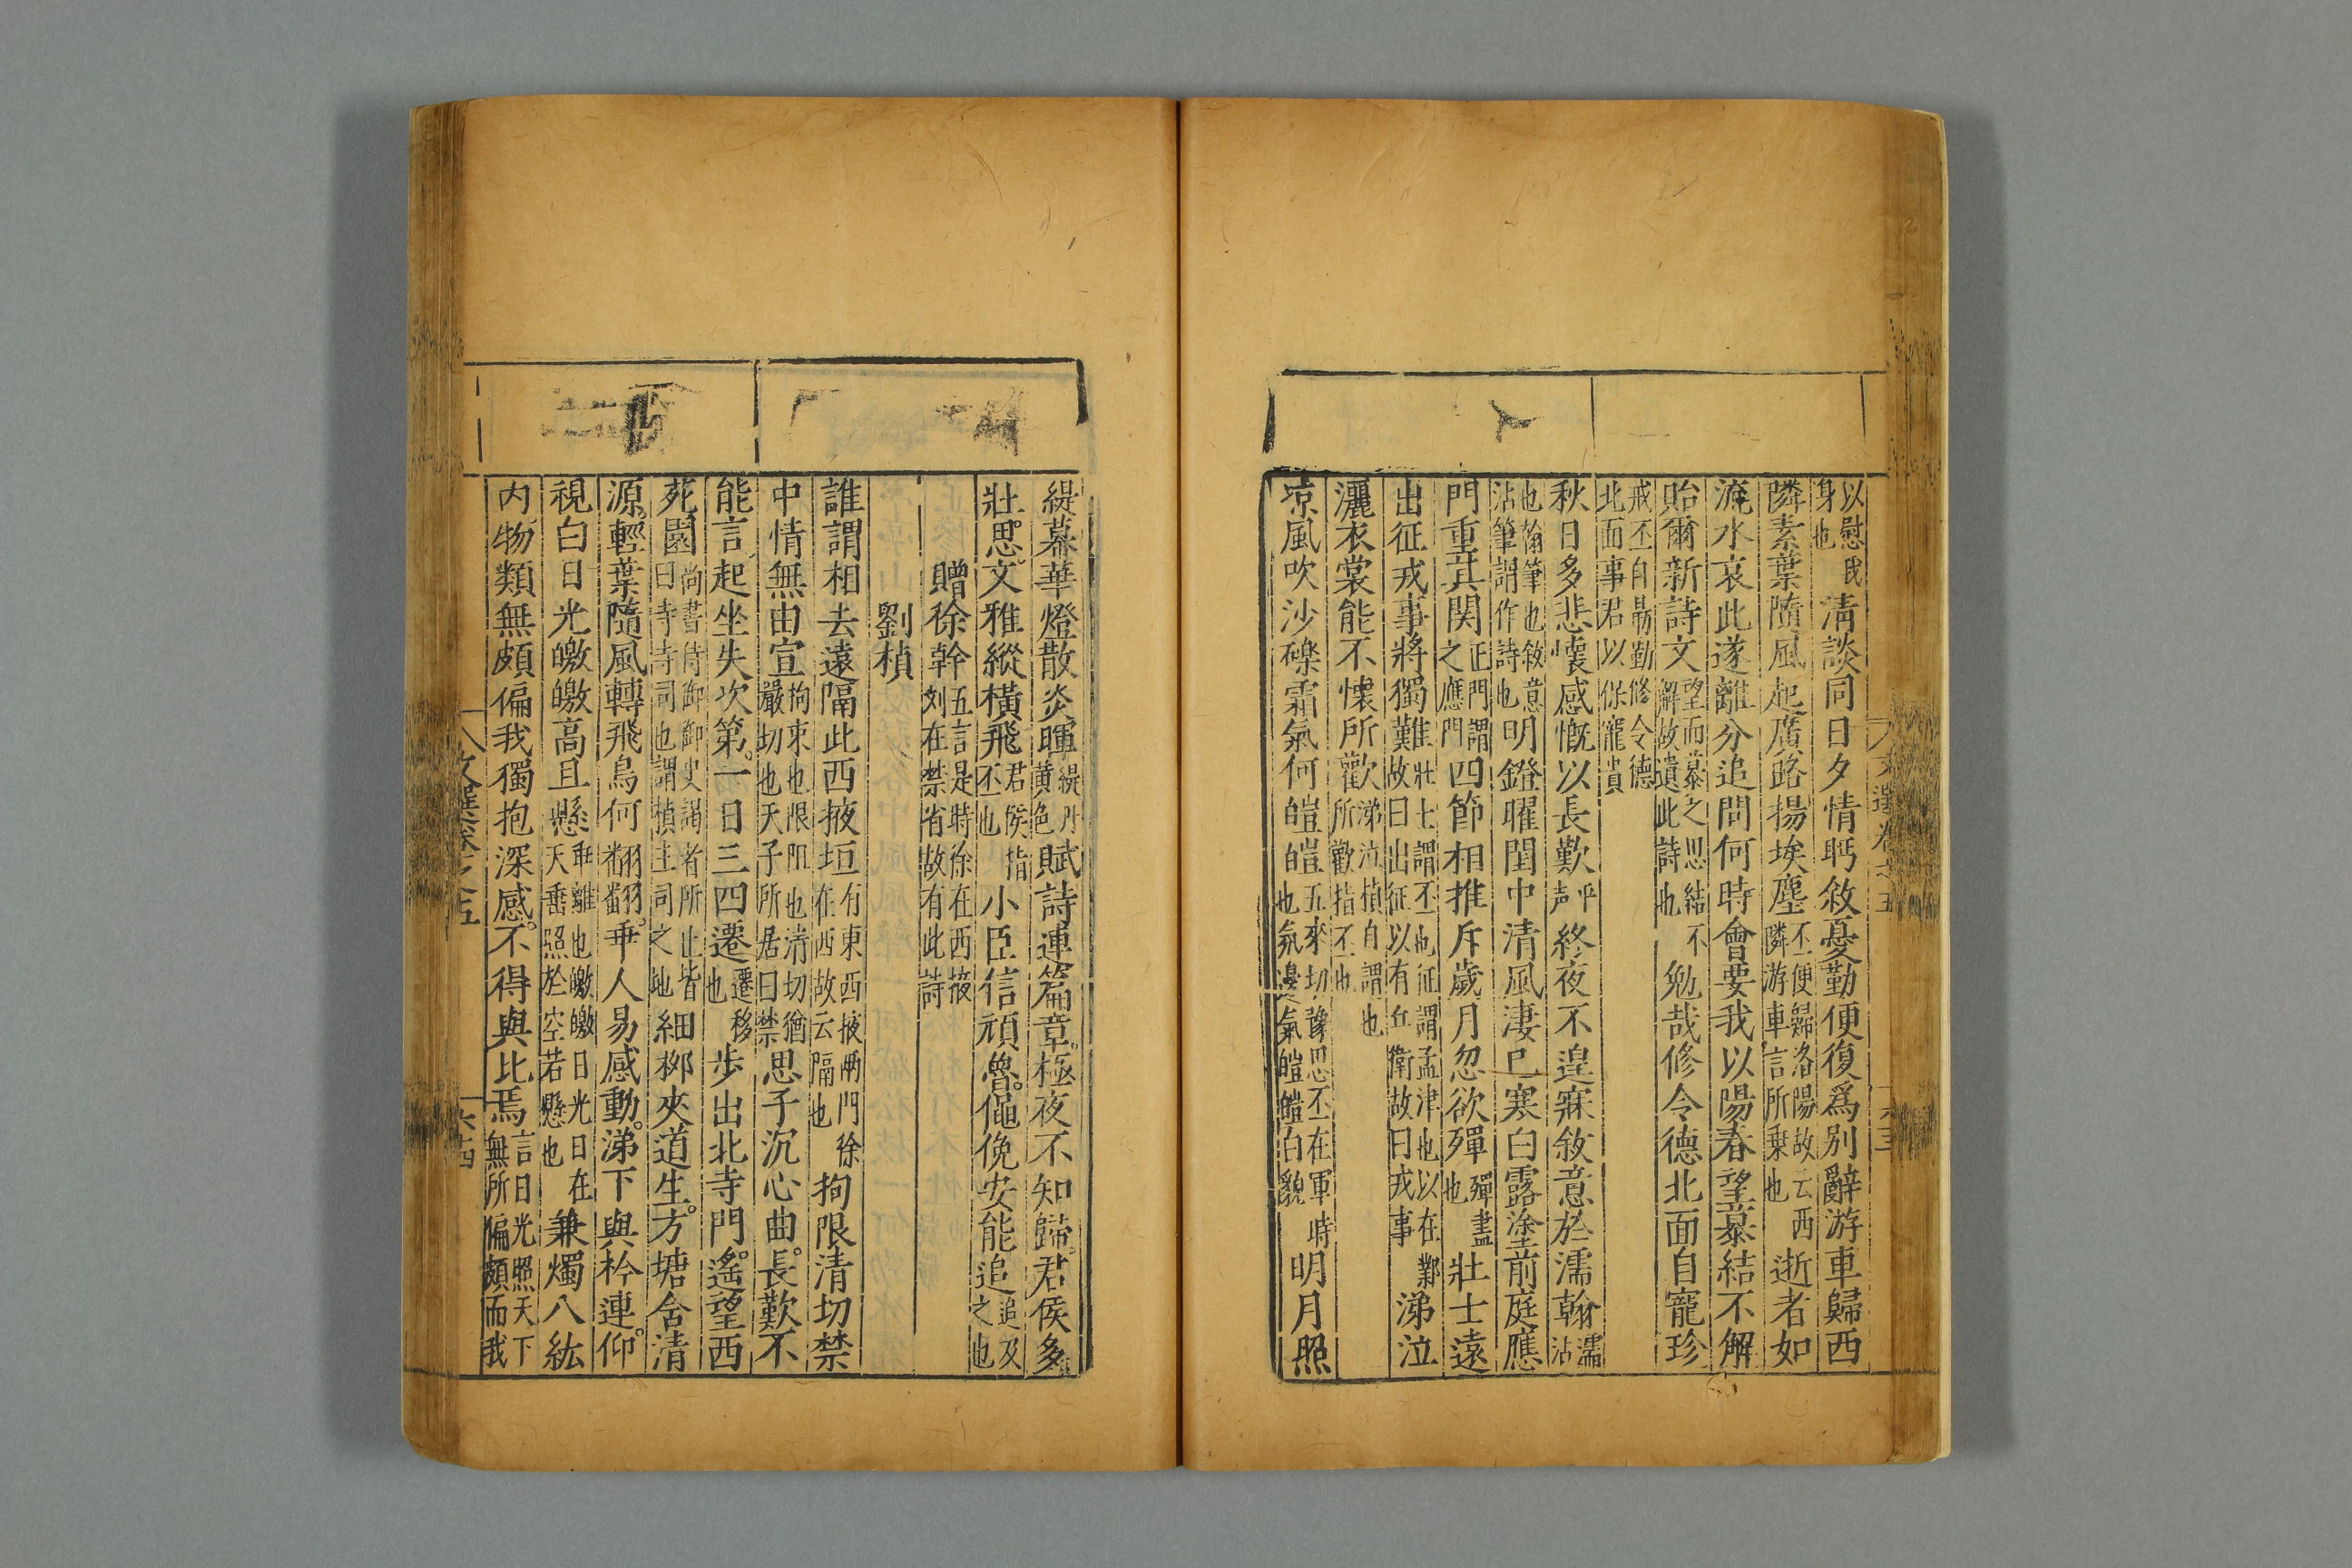 以慰我身也清談同日夕情眄敘憂勤便復爲别辭游車歸西
隣素葉隨風起廣路揚埃塵丕便歸洛陽故云西隣游車言所乘也逝者如
流水哀此遂離分追問何時會要我以陽春望慕結不解
貽爾新詩文望而慕之思結不解故遺此詩也勉哉修令德北面自寵珍
戒丕自勗勤修令德北面事君以保寵貴
秋日多悲懷感慨以長歎平声終夜不遑寐敘意於濡翰濡沾
也翰筆也敘意沾筆謂作詩也明鐙曜閨中清風淒已寒白露塗前庭應
門重其関正門謂之應門四節相推斥歲月忽欲殫殫盡也壯士遠
出征戎事將獨難壯士謂丕也征謂孟津也以在鄴故曰出征以有兵衛故曰戎事涕泣
灑衣裳能不懷所歡涕泣楨自謂也所歡指丕也
凉風吹沙礫霜氣何皚皚五來切豫思丕在軍時也氛邊氣皚皚白貌明月照
文選卷之五
六三
緹幕華燈散炎暉緹丹黄色賦詩連篇章極夜不知歸君侯多
壯思文雅縱橫飛君侯指丕也小臣信頑魯僶俛安能追追及之也
贈徐幹五言是時徐在西掖刘在禁省故有此詩
劉楨
誰謂相去遠隔此西掖垣有東西掖兩門徐在西故云隔也拘限清切禁
中情無由宣拘束也限阻也清切猶嚴切也天子所居曰禁思子沉心曲長歎不
能言起坐失次第一日三四遷遷移也步出北寺門遙望西
苑園尚書侍御御史謁者所止皆曰寺寺司也謂楨主司之地細柳夾道生方塘含清
源輕葉隨風轉飛鳥何翻翻乖人易感動涕下與衿連仰
視白日光皦皦高且懸乖離也皦皦日光日在天垂照於空若懸也兼燭八紘
内物類無頗偏我獨抱深感不得與比焉言日光照天下無所偏頗而我
文選卷之五
六四